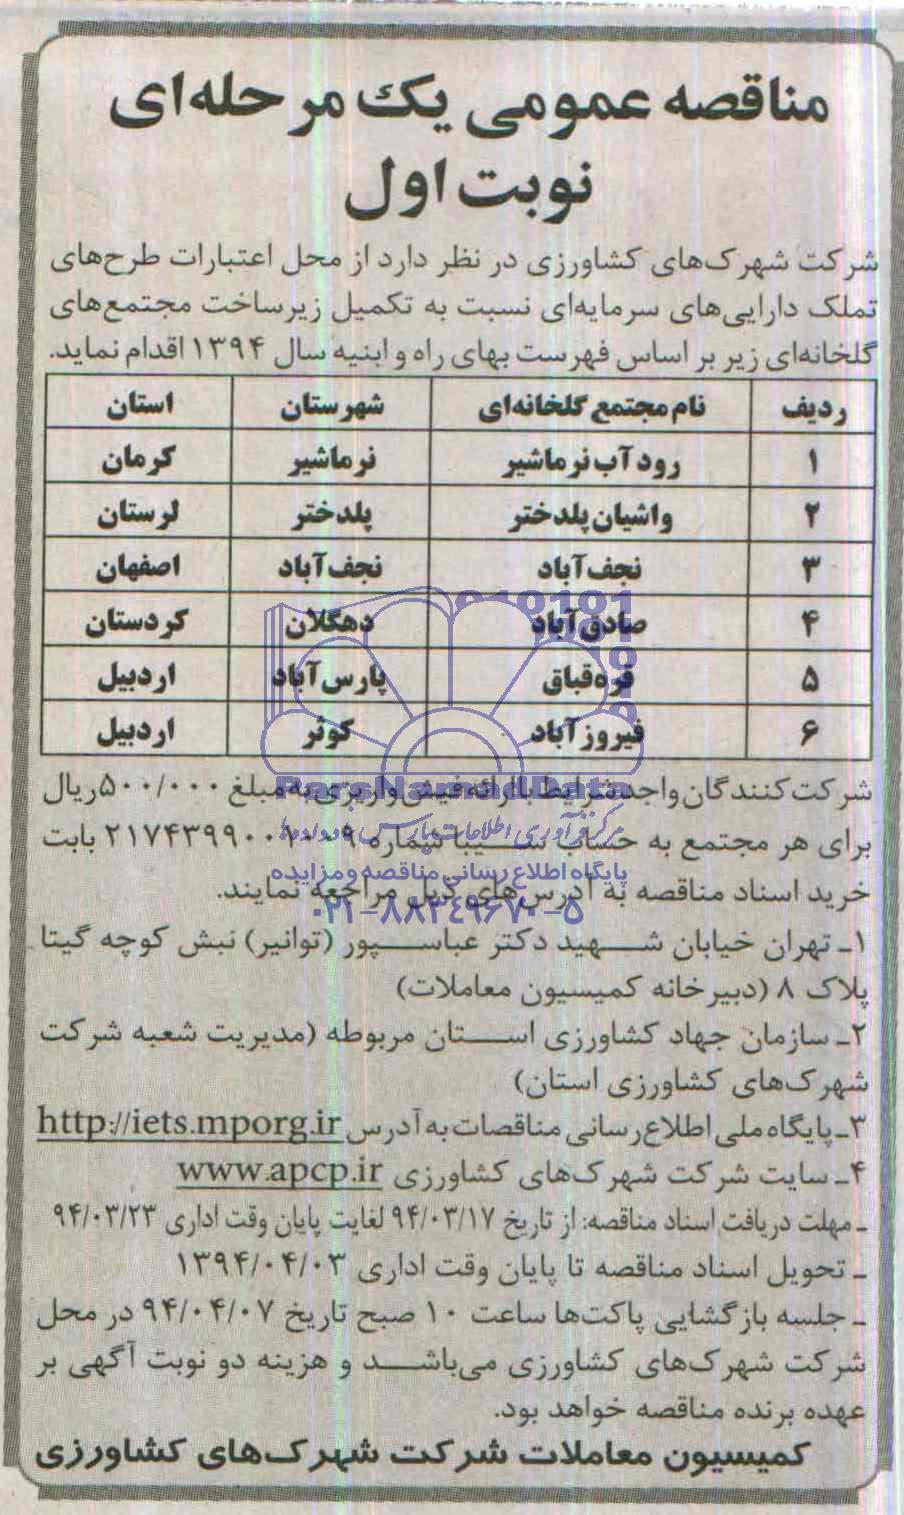 مناقصه عمومی یک مرحله‌ای
نوبت اول
شرکت شهرک‌های کشاورزی در نظر دارد از محل اعتبارات طرح‌های
تملک دارایی‌های سرمایه‌ای نسبت به تکمیل زیرساخت مجتمع‌های
گلخانه‌ای زیر بر اساس فهرست بهای راه و ابنیه سال ۱۳۹۴ اقدام نماید.
ردیف نام مجتمع گلخانه‌ای شهرستان استان
۱ رود آب نرماشیر نرماشیر کرمان
۲ واشیان پلدختر پلدختر لرستان
۳ نجف‌آباد نجف‌آباد اصفهان
۴ صادق‌آباد دهگلان کردستان
۵ قره‌قباق پارس‌آباد اردبیل
۶ فیروزآباد کوثر اردبیل
شرکت‌کنندگان واجد شرایط با ارائه فیش واریزی به مبلغ ۵۰۰/۰۰۰ ریال
برای هر مجتمع به حساب سیبا شماره ۲۱۷۴۳۹۹۰۰۱۰۰۹ بابت
خرید اسناد مناقصه به آدرس‌های ذیل مراجعه نمایند.
۱ـ تهران خیابان شهید دکتر عباسپور (توانیر) نبش کوچه گیتا
پلاک ۸ (دبیرخانه کمیسیون معاملات)
۲ـ سازمان جهاد کشاورزی استان مربوطه (مدیریت شعبه شرکت
شهرک‌های کشاورزی استان)
۳ـ پایگاه ملی اطلاع‌رسانی مناقصات به آدرس http://iets.mporg.ir
۴ـ سایت شرکت شهرک‌های کشاورزی www.apcp.ir
ـ مهلت دریافت اسناد مناقصه: از تاریخ ۹۴/۰۳/۱۷ لغایت پایان وقت اداری ۹۴/۰۳/۲۳
ـ تحویل اسناد مناقصه تا پایان وقت اداری ۱۳۹۴/۰۴/۰۳
ـ جلسه بازگشایی پاکت‌ها ساعت ۱۰ صبح تاریخ ۹۴/۰۴/۰۷ در محل
شرکت شهرک‌های کشاورزی می‌باشد و هزینه دو نوبت آگهی بر
عهده برنده مناقصه خواهد بود.
کمیسیون معاملات شرکت شهرک‌های کشاورزی
ParsNamadData
مرکز فرآوری اطلاعات پارس نماد داده‌ها
پایگاه اطلاع رسانی مناقصه و مزایده
۰۲۱-۸۸۳۴۹۶۷۰-۵